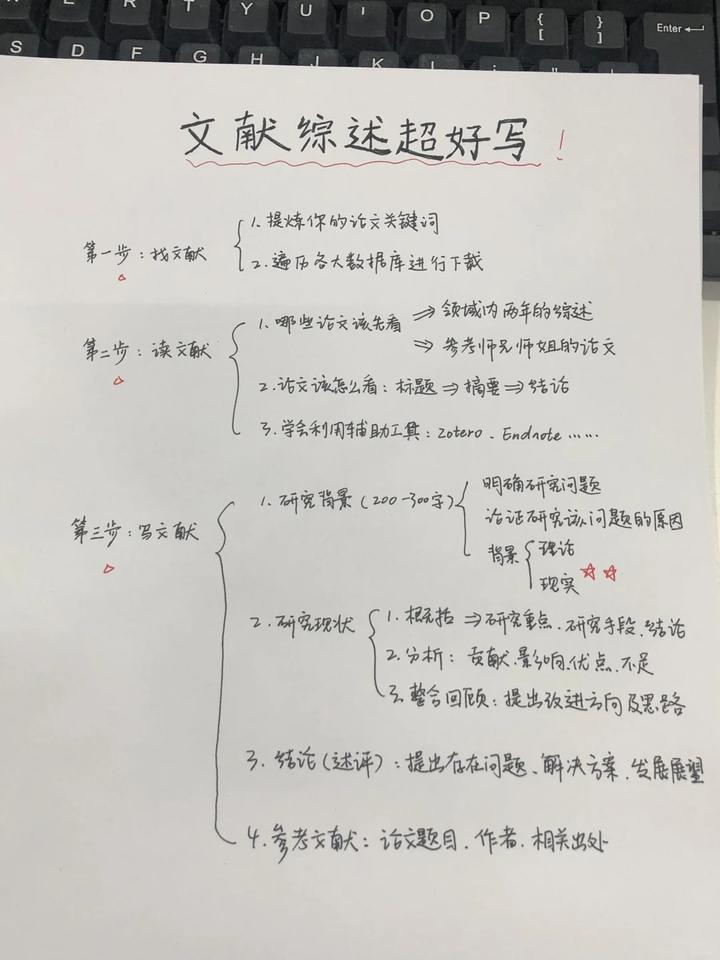 E R T Y U I O P { [ } ] Enter
S D F G H J K L
文献综述超好写!
第一步:找文献
1.提炼你的论文关键词
2.遍历各大数据库进行下载
第二步:读文献
1.哪些论文该先看
⇒领域内两年的综述
⇒参考师兄师姐的论文
2.论文该怎么看:标题⇒摘要⇒结论
3.学会利用辅助工具:Zotero、Endnote……
第三步:写文献
1.研究背景(200-300字)
明确研究问题
论证研究该问题的原因
背景
理论
现实☆☆
2.研究现状
1.概括⇒研究重点、研究手段、结论
2.分析:贡献、影响、优点、不足
3.整合回顾:提出改进方向及思路
3.结论(述评):提出存在问题、解决方案、发展展望
4.参考文献:论文题目、作者、相关出处